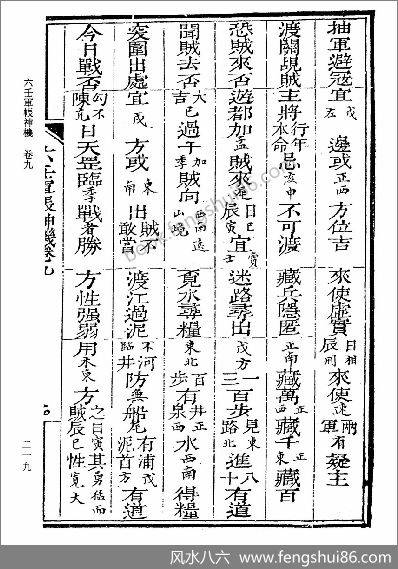 抽軍避寇宜戌 邊或正西方位吉 來使虛實日相辰刑來使 兩軍有疑主
渡關覘賊主將行年本命忌亥申不可渡 藏兵隱匿正南藏萬正西藏千正東藏百
恐賊來否遊都加孟賊來 辰寅宜 迷路尋出戌方一百三十步見東路北進八有道
聞賊去否大吉已過午加季賊向西高遠山 覓水尋糧東北百步有井泉正西水西南得糧
突圍出處宜戌方或東南出賊不敢當 渡江過泥不臨河井防無船尾有浦泥首戌方有道
今日戰否勾陳不 日天罡臨季戰者勝 方性強弱用 東方之日寅其勇猛而賊辰巳性寬大
六壬軍帳神機卷九
六壬軍帳神機 卷九
二一九
fengshui86.com
风水八六 www.fengshui86.com